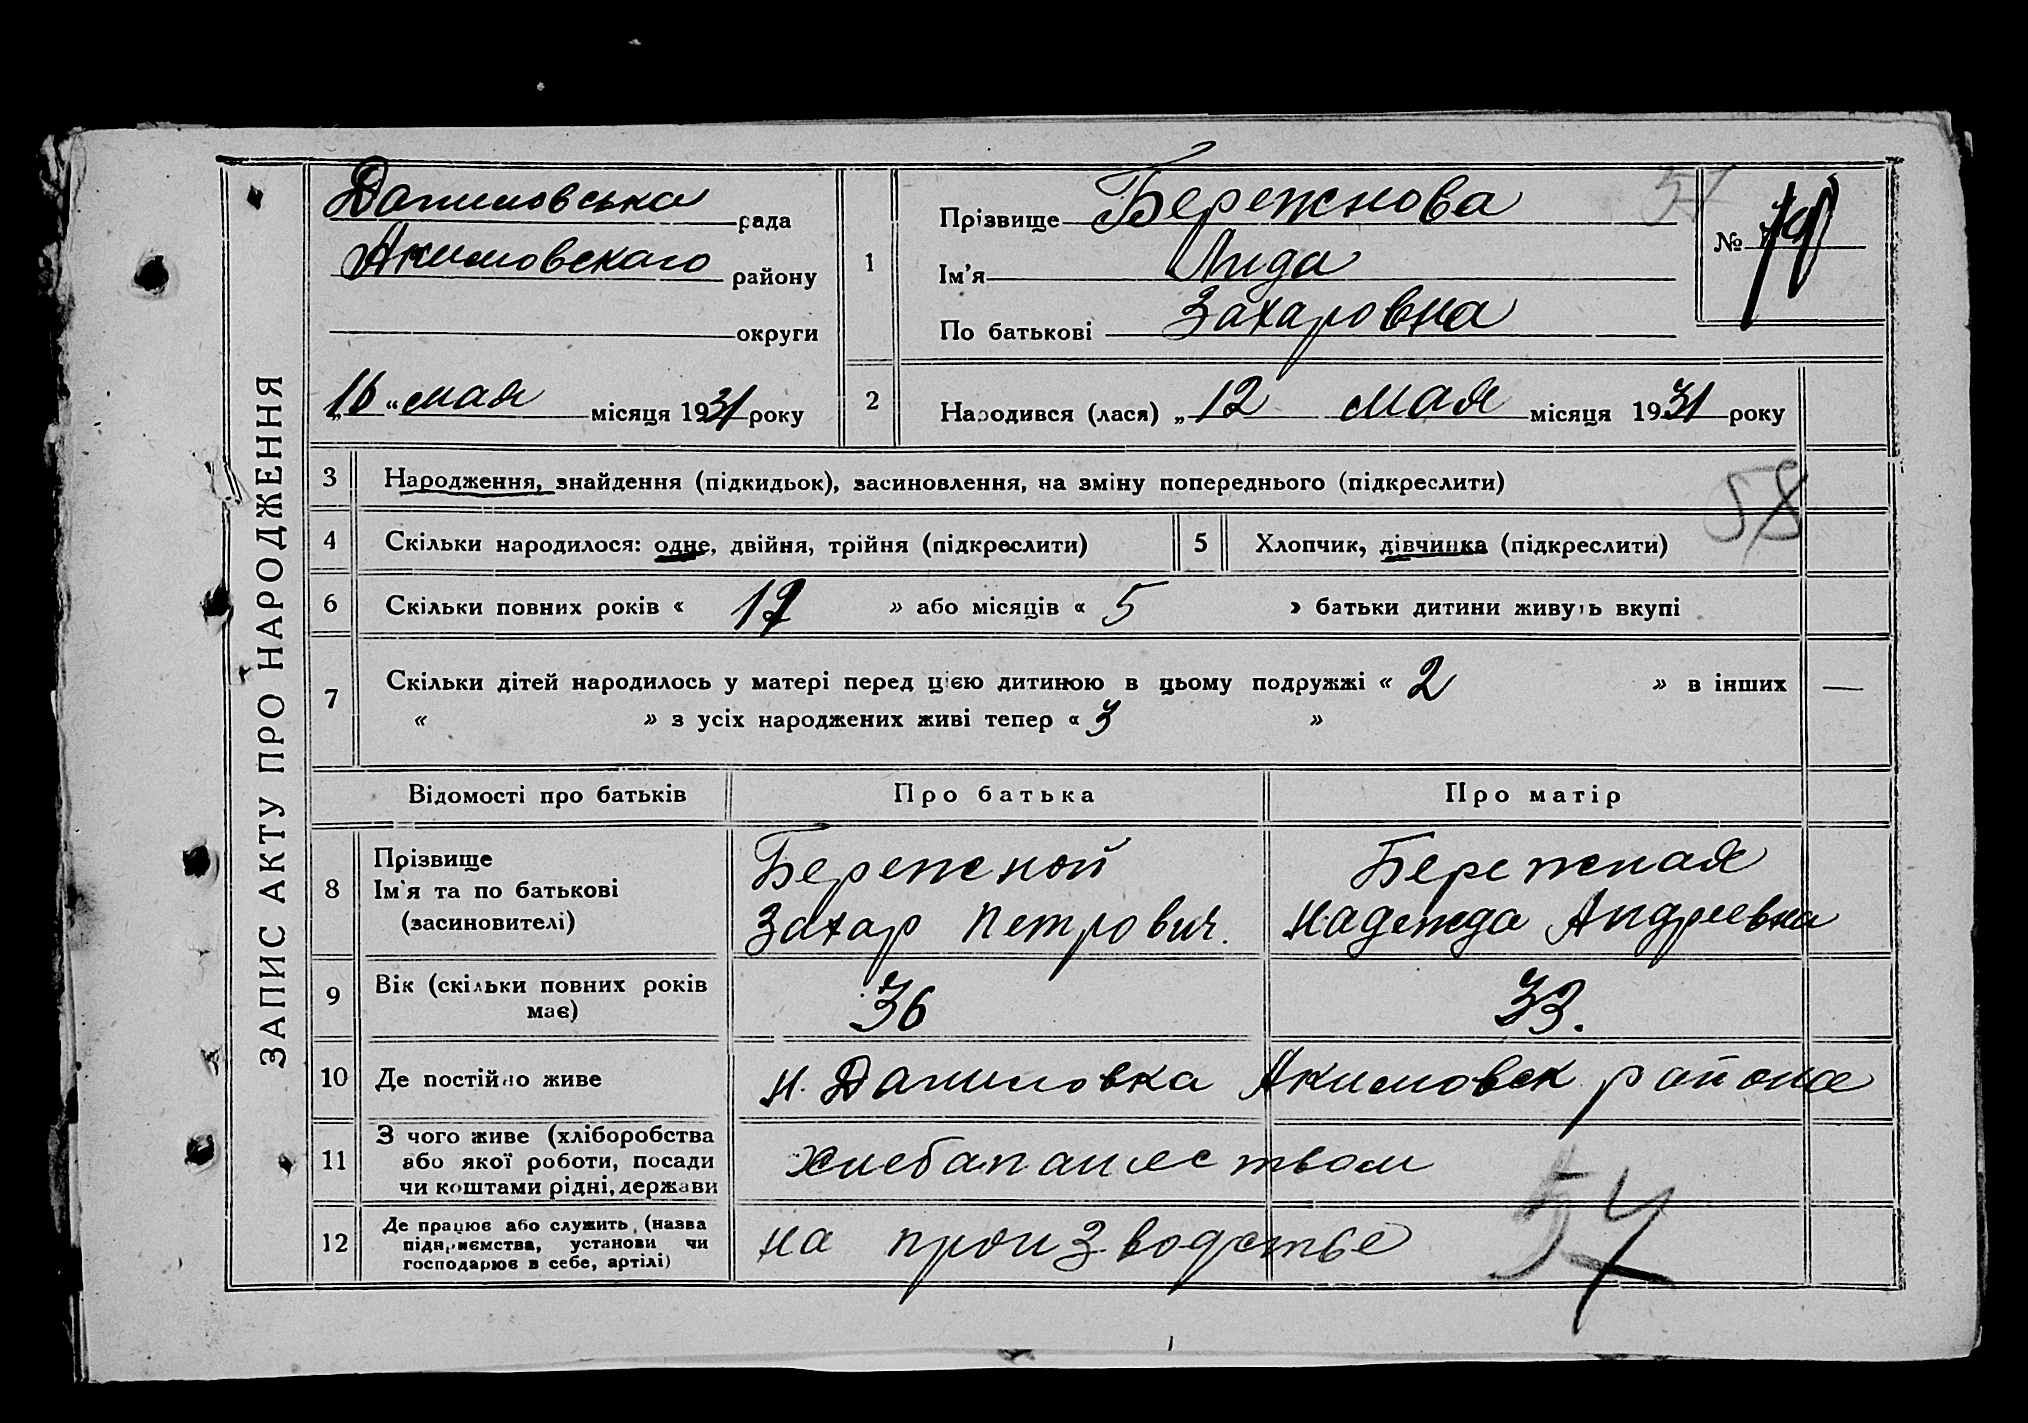 ЗАПИС АКТУ ПРО НАРОДЖЕННЯ
Даниловська рада
Акимовскаго району
округи
„16“ мая місяця 1931 року
1
Прізвище Бережнова
Ім’я Лида
По батькові Захаровна
57
№
2
Народився (лася) „12 мая місяця 1931 року
3 Народження, знайдення (підкидьок), засиновлення, на зміну попереднього (підкреслити)
58
4 Скільки народилося: одне, двійня, трійня (підкреслити)
5 Хлопчик, дівчинка (підкреслити)
6 Скільки повних років « 17 » або місяців « 5 » батьки дитини живуть вкупі
7 Скільки дітей народилось у матері перед цією дитиною в цьому подружжі « 2 » в інших —
« » з усіх народжених живі тепер « 3 »
Відомості про батьків Про батька Про матір
8 Прізвище
Ім’я та по батькові
(засновителі)
Бережной
Захар Петрович.
Бережная
Надежда Андреевна
9 Вік (скільки повних років
має)
36
33.
10 Де постійно живе
н. Даниловка Акимовск районе
11 З чого живе (хліборобства
або якої роботи, посади
чи коштами рідні, держави
хлебапашеством
12 Де працює або служить (назва
підприємства, установи чи
господарює в себе, артілі)
на производстве
54